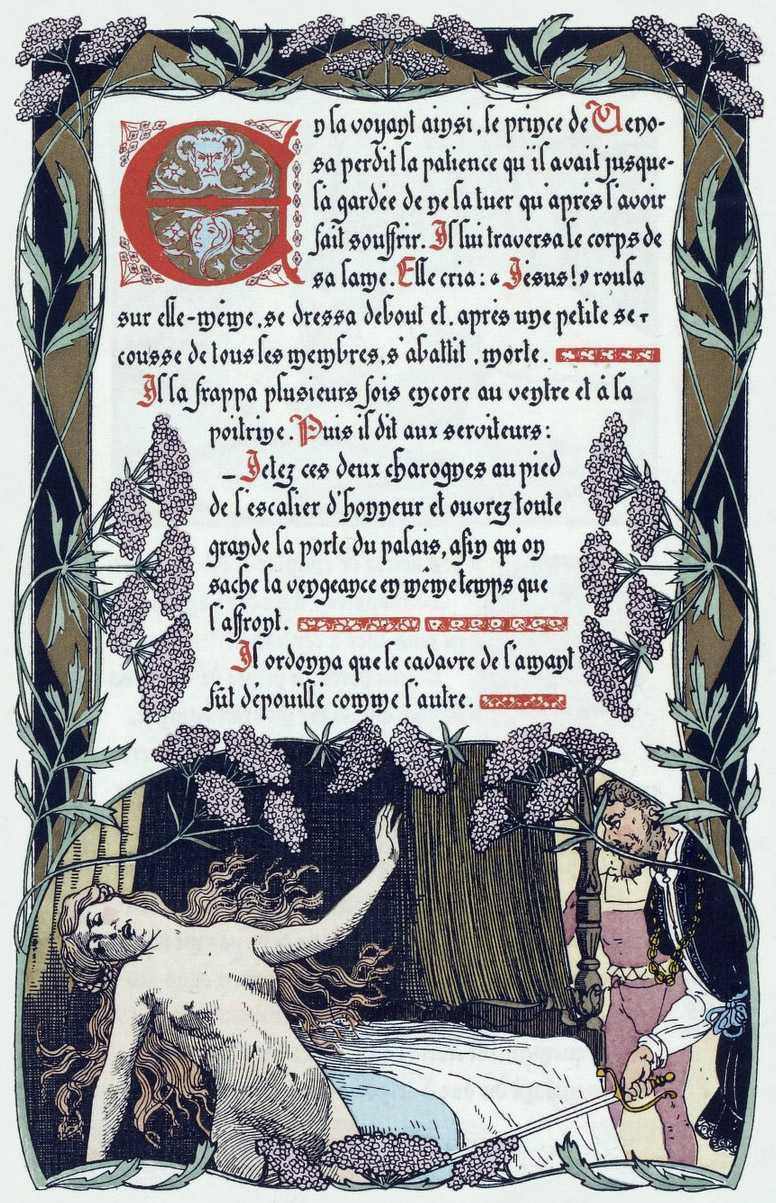 En la voyant ainsi, le prince de Veno-
sa perdit la patience qu'il avait jusque-
là gardée de ne la tuer qu'après l'avoir
fait souffrir. Il lui traversa le corps de
sa lame. Elle cria: « Jésus! » roula
sur elle-même, se dressa debout et, après une petite se-
cousse de tous les membres, s'abattit, morte.
Il la frappa plusieurs fois encore au ventre et à la
poitrine. Puis il dit aux serviteurs:
– Jetez ces deux charognes au pied
de l'escalier d'honneur et ouvrez toute
grande la porte du palais, afin qu'on
sache la vengeance en même temps que
l'affront.
Il ordonna que le cadavre de l'amant
fût dépouillé comme l'autre.